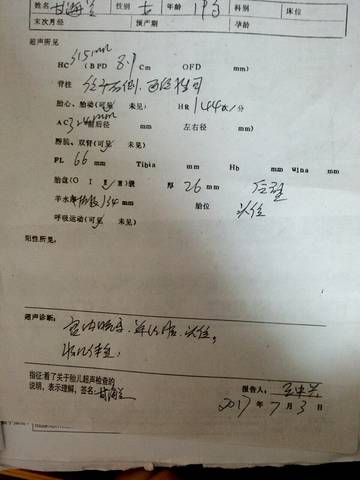 姓名 甘海兰 性别 女 年龄 科别 床位
末次月经 预产期 孕龄
超声所见
HC 315mm (BPD 8.9 Cm OFD mm)
脊柱
胎心、胎动(可见 未见) HR 144次/分
AC 324mm 前后径 mm 左右径 mm
胫肌、双肾(可见 未见)
FL 66 mm Tibia mm Hb mm Ulna mm
胎盘(O I Ⅱ Ⅲ)级 厚 26 mm 后壁
羊水 指数 134 mm 胎位 头位
呼吸运动(可见 未见)
阳性所见:
超声诊断: 宫内晚孕.单活胎.头位。
指征:看了关于胎儿超声检查的
说明,表示理解,签名: 甘海兰 报告人:
2017 年 7 月 3 日